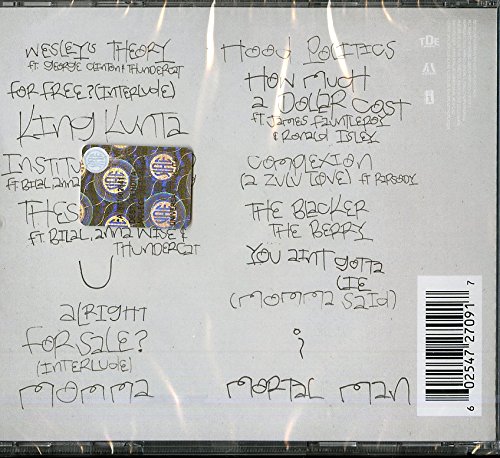 WESLEY'S THEORY
FT GEORGE CLINTON & THUNDERCAT
FOR FREE? (INTERLUDE)
KING KUNTA
INSTITU
FT BILAL, ANNA
THES
FT BILAL, ANNA WISE &
THUNDERCAT
U
ALRIGHT
FOR SALE?
(INTERLUDE)
MOMMA
HOOD POLITICS
HOW MUCH
A DOLLAR COST
FT JAMES FAUNTLEROY
& RONALD ISLEY
COMPLEXION
(A ZULU LOVE) FT RAPSODY
THE BLACKER
THE BERRY
YOU AIN'T GOTTA
LIE
(MOMMA SAID)
i
MORTAL MAN
TDE
6 02547 27091 7